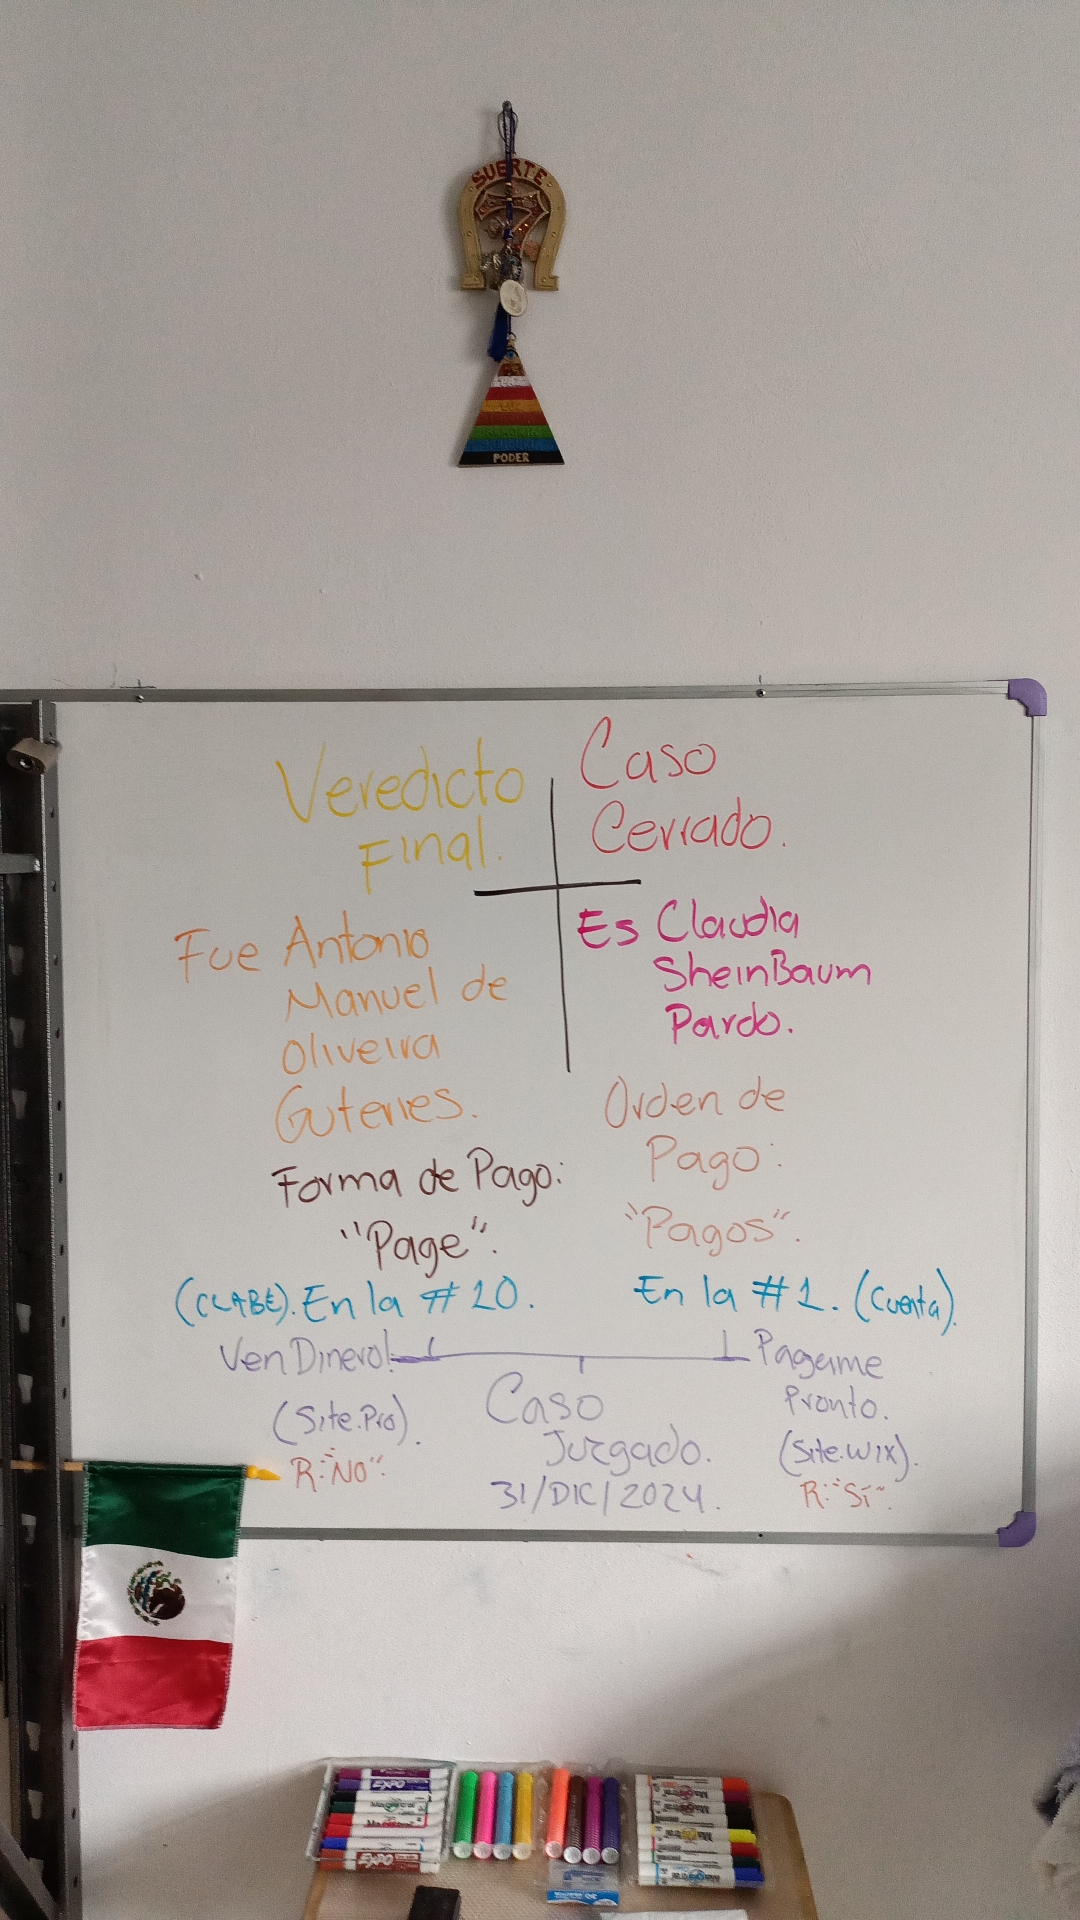 SUERTE
7
PODER
Veredicto
Final.
Caso
Cerrado.
Fue Antonio
Manuel de
Oliveira
Guterres.
Es Claudia
SheinBaum
Pardo.
Forma de Pago:
"Page".
Orden de
Pago:
"Pagos".
(CLABE). En la #10.
En la #1. (Cuenta).
Ven Dinero!
Pagame
Pronto.
(Site.Pro).
R:"NO".
(Site.WIX).
R:"Sí".
Caso
Juzgado.
31/DIC/2024.
EXPO
EXPO